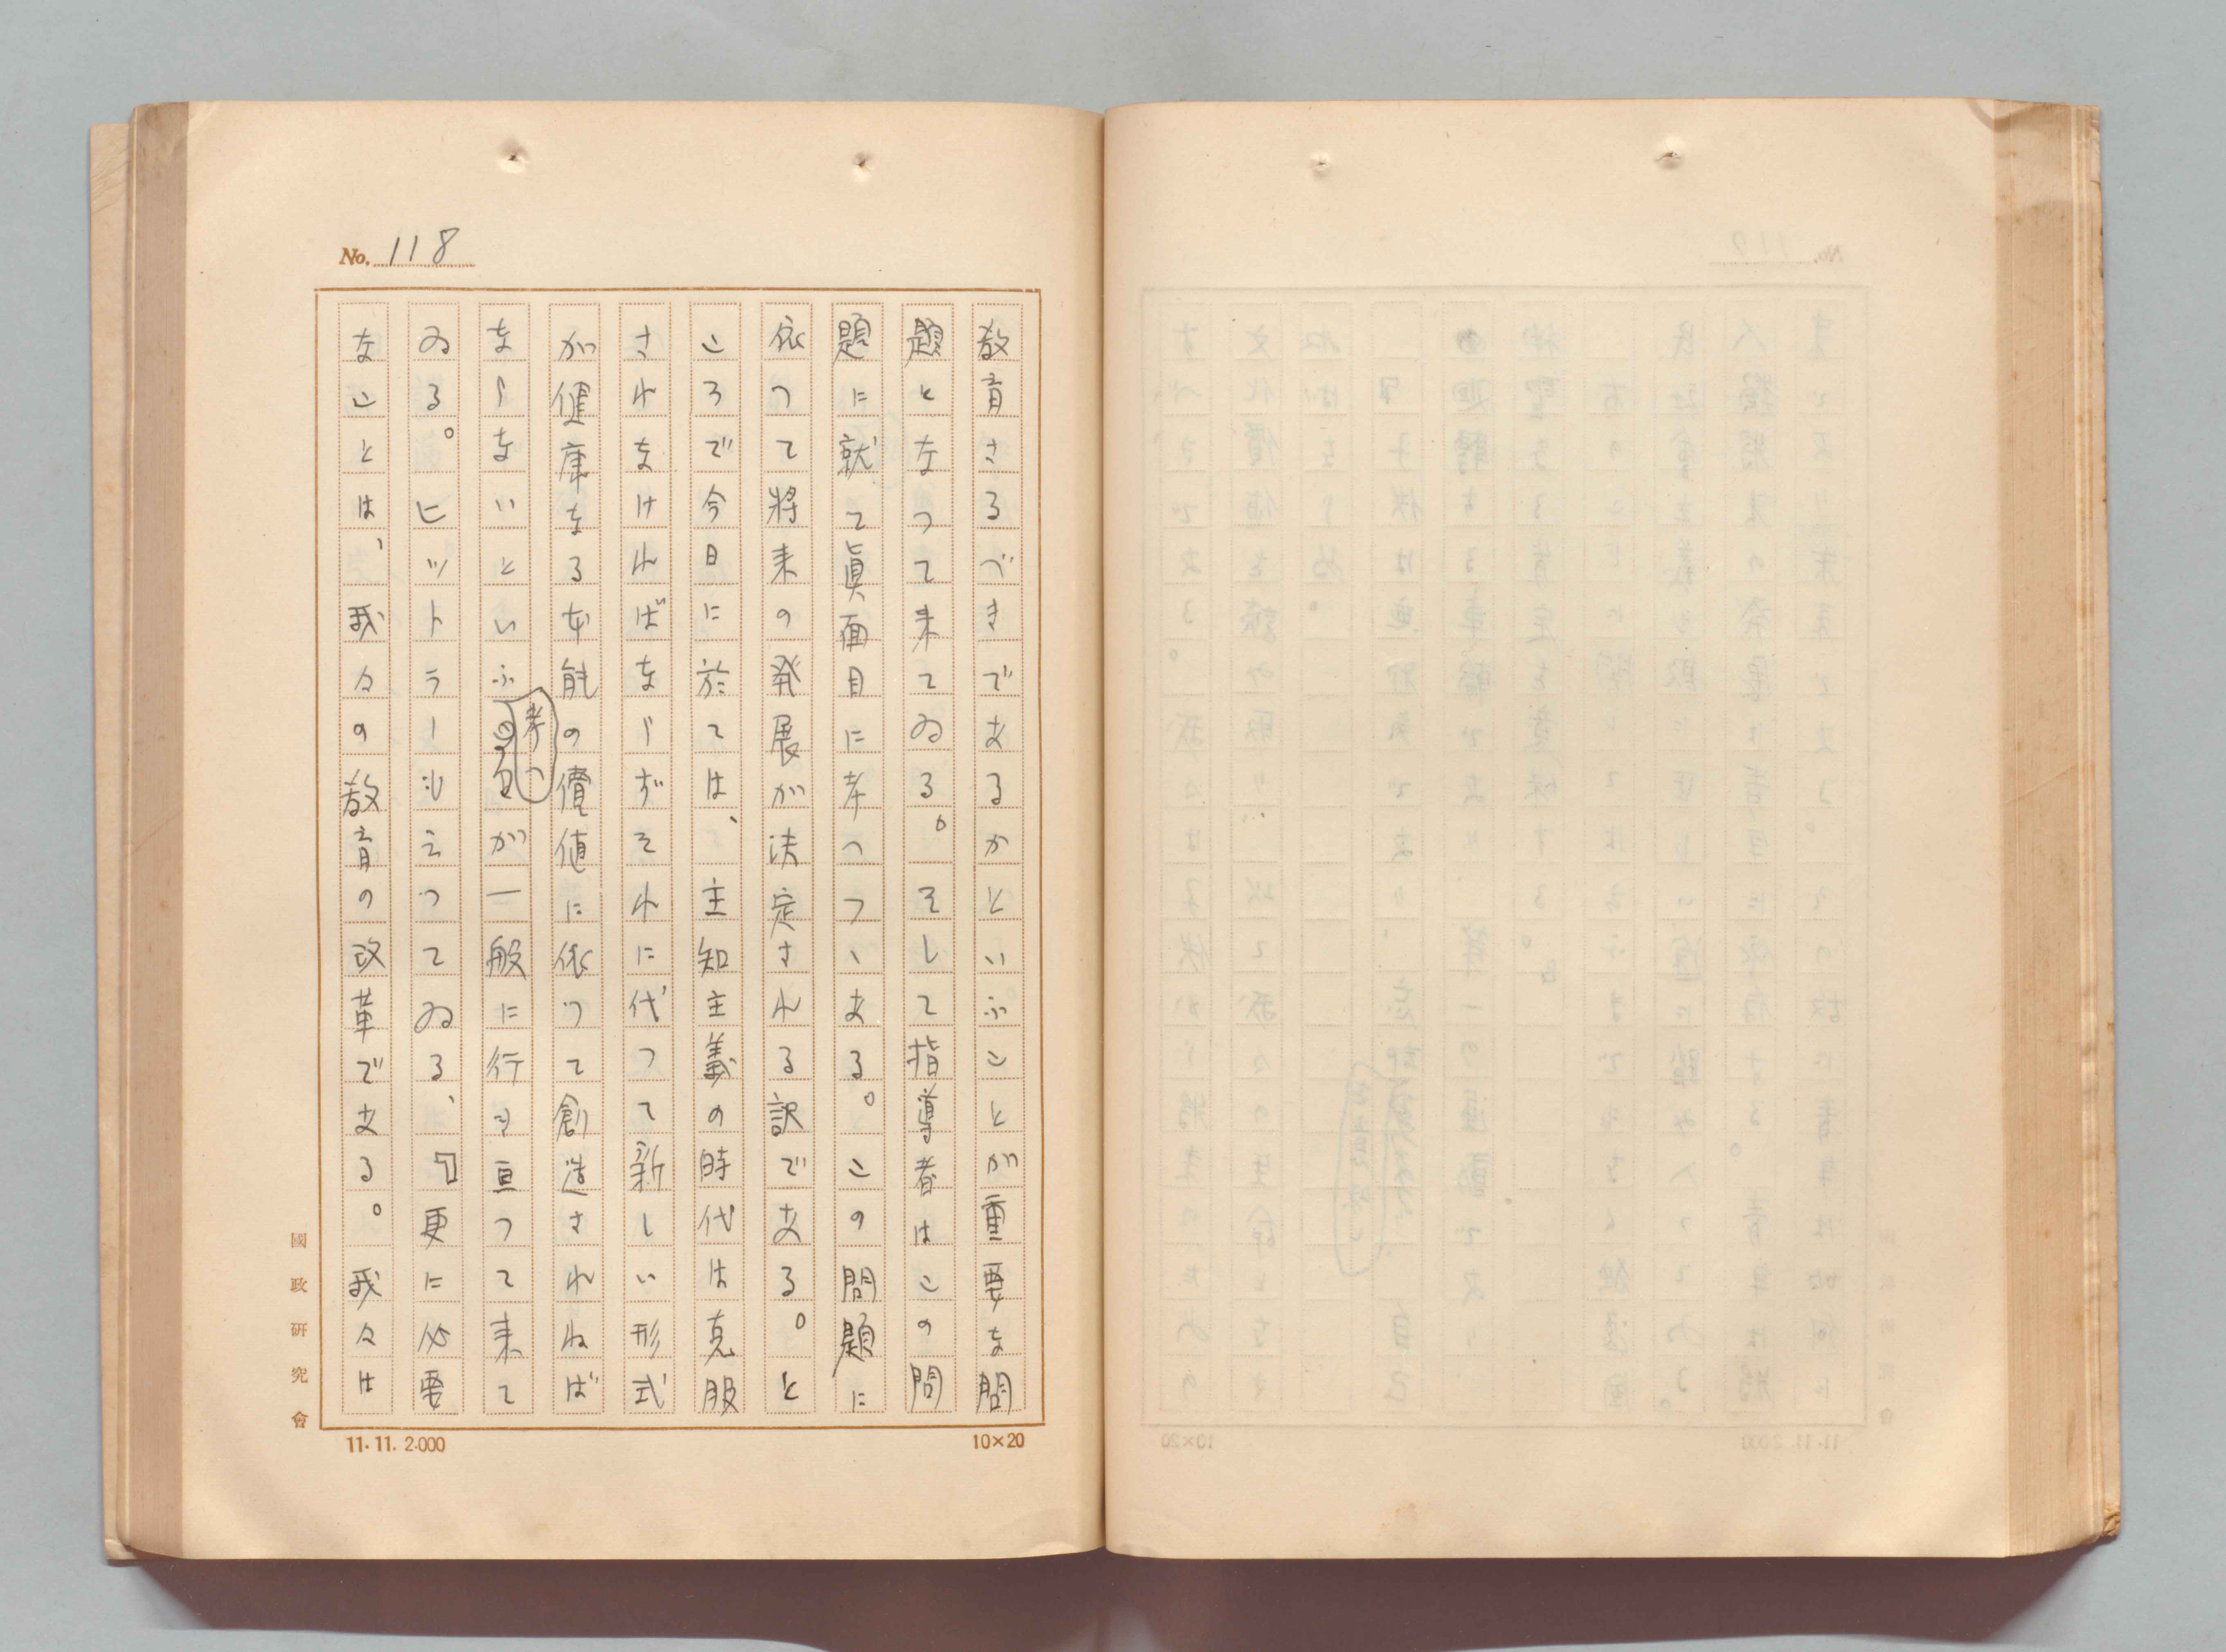 No. 118
教育さるべきであるかといふことが重要な問
題となつて来てゐる。そして指導者はこの問
題に就て眞面目に考へつゝある。この問題に
依つて将来の発展が決定される訳である。と
ころで今日に於ては、主知主義の時代は克服
されなければならずそれに代つて新しい形式
が健康なる本能の價値に依つて創造されねば
ならないといふ考へが一般に行き亘つて来て
ゐる。ヒットラーも云つてゐる、『更に必要
なことは、我々の教育の改革である。我々は
國政研究會
11.11.2.000
10×20